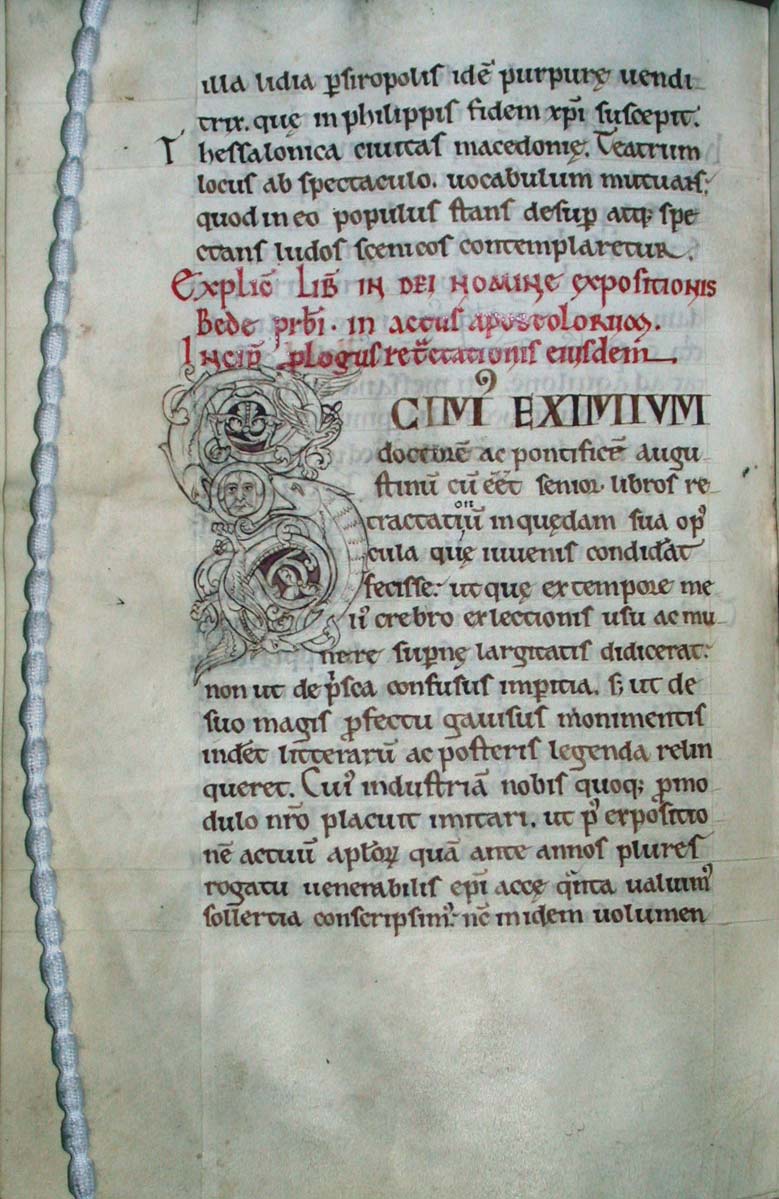 illa lidia ꝑsiropolis idē purpurę uendi
trix. quę in philippis fidem xp̄i suscepit.
Thessalonica ciuitas macedonię. Teatrum
locus ab spectaculo. uocabulum mutuans;
quod in eo populus stans desup̄ atq; spe
ctans ludos scenicos contemplaretur.
Explić Lib̄ IN DEI NOMINE expositionis
Bede prb̄i. in actus apostolorum.
Incip̄ ꝓlogus retr̄ctationis eiusdem.
SCIMꝰ EXIMIVM
doctorē ac pontificē augu
stinū cū eēt senior libros re
tractationū in quędam sua opꝰ
cula quę iuuenis condid̄at
fecisse. ut quę ex tempore me
liꝰ crebro ex lectionis usu ac mu
nere sup̄nę largitatis didicerat.
non ut de p̄sca confusus imp̄itia. s; ut de
suo magis ꝓfectu gauisus monimentis
inder̄et litterarū ac posteris legenda relin
queret. Cuiꝰ industriā nobis quoq; ꝓ mo
dulo nr̄o placuit imitari. ut pꝰ expositio
nē actuū aplōꝝ quā ante annos plures
rogatu uenerabilis ep̄i accę q̄nta ualuimꝰ
sollertia conscripsimꝰ. nē in idem uolumen